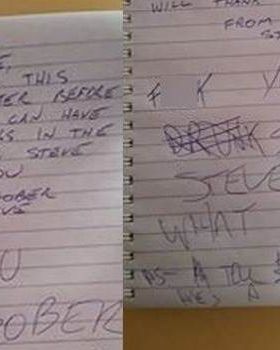 E,
THIS
TER BEFORE
CAN HAVE
S IN THE
STEVE
OU
OBER
VE
U
OBER
WILL THANK
FROM
ST
F K Y
DRUNK
STEVE
WHAT
PS- A TELL
HE'S A